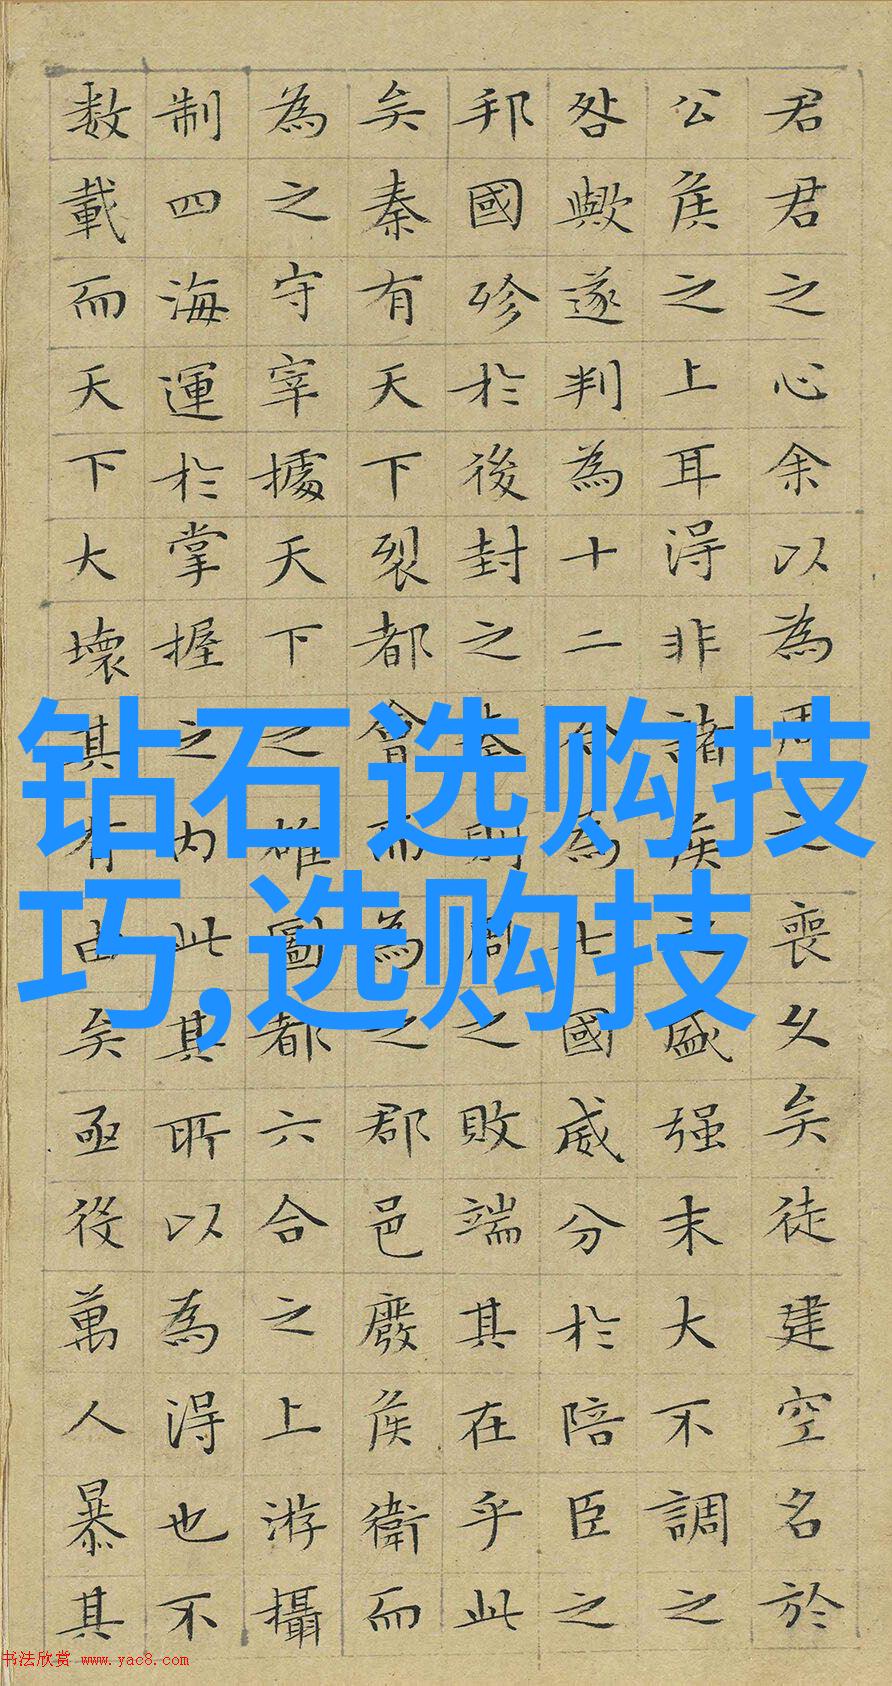 君君之心余以為周之喪乆矣徒建空名於
公侯之上耳得非諸侯之盛强末大不調之
咎歟遂判為十二合為七國威分於陪臣之
邦國殄於後封之秦則周之敗端其在乎此
矣秦有天下裂都會而為之郡邑廢侯衛而
為之守宰據天下之雄圖都六合之上游攝
制四海運於掌握之内此其所以為得也不
数載而天下大壞其有由矣亟役萬人暴其
钻石选购技
巧,选购技
书法欣赏 www.yac8.com